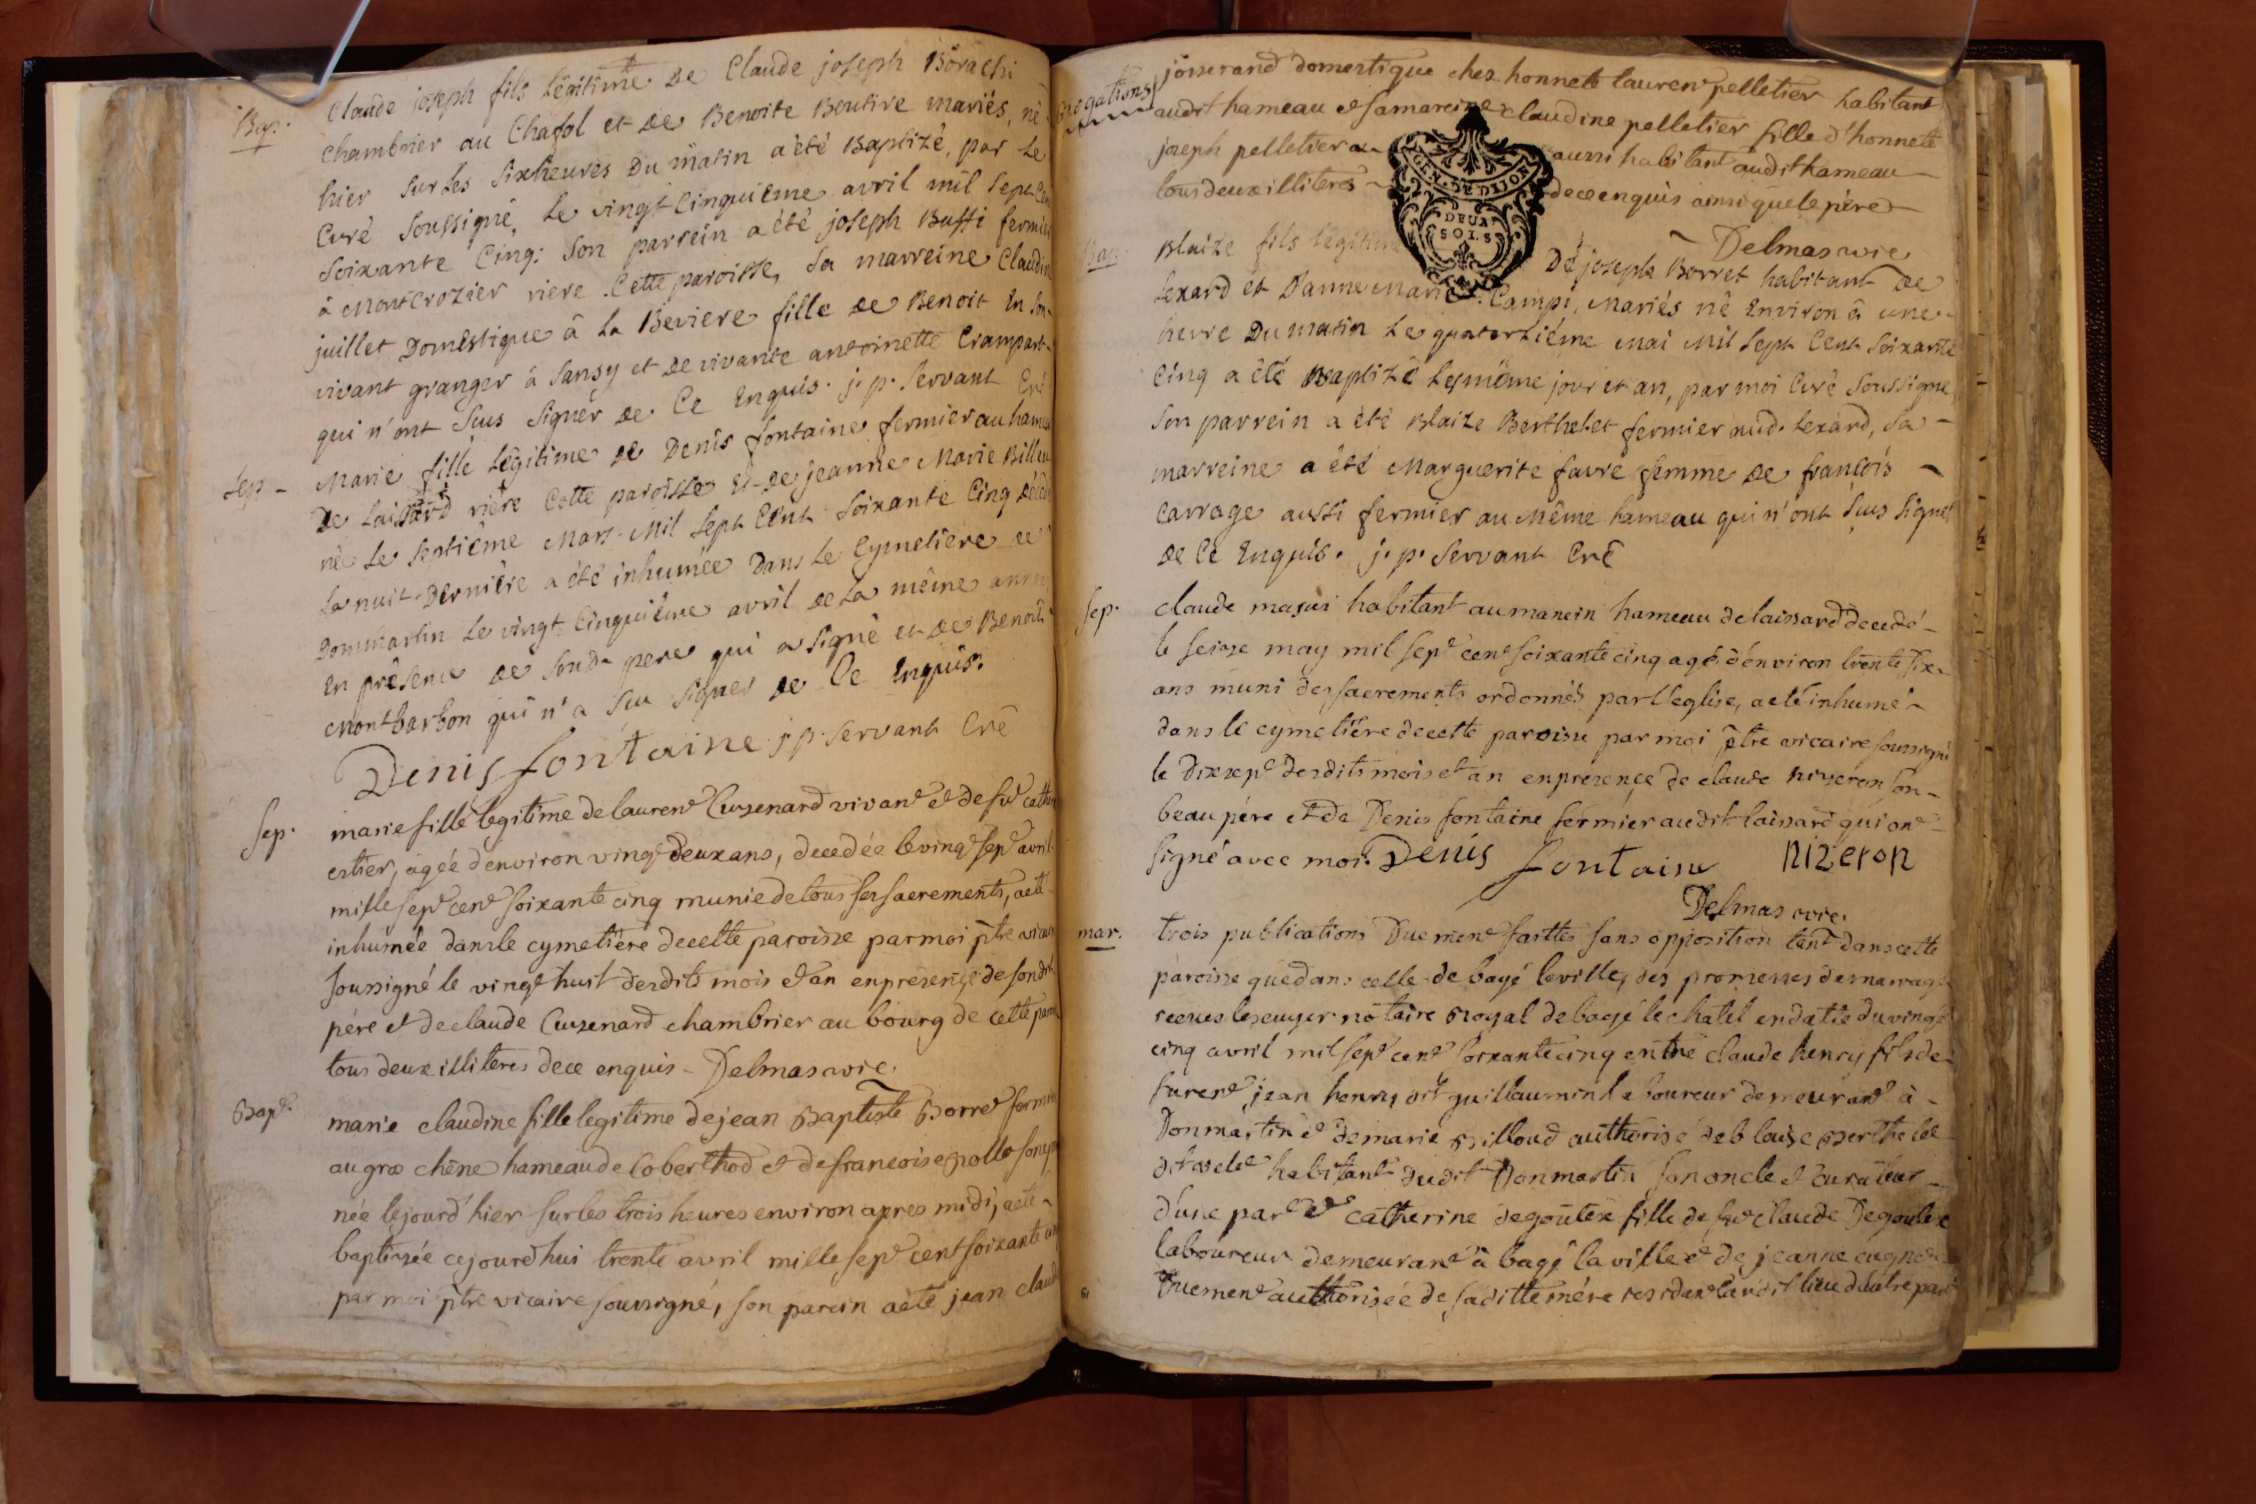 Bap. Claude joseph fils Légitime de Claude joseph Borachi
chambrier au Chafol et de Benoite Boutire mariés, né
hier sur les six heures du matin a été Baptizé, par le
Curé soussigné, le vingt Cinquième avril mil sept Cen
soixante Cinq: son parrein a été joseph Buffi fermier
à Montcrozier riere Cette paroisse, sa marreine Claudine
juillet Domestique à la Beviere fille de Benoit en son
vivant granger à Sansy et de vivante antoinette Crampart
qui n'ont sçus signer de Ce Enquis. j. p. servant Cré
Sep - Marie fille Légitime de Denis fontaine fermier au hameau
de Laissard riere Cette paroisse et de jeanne Marie Billou
né le septième Mars Mil sept Cent soixante Cinq décéd
la nuit Dernière a été inhumée dans le Cymetiere de
Dommartin le vingt Cinquième avril de la même année
en présence de sond. pere qui a signé et de Benoit
Montbarbon qui n'a sçu signer de Ce Enquis.
Denis fontaine j p. servant Cré
Sep. marie fille legitime de laurent Cuzenard vivant et de fue cathe
estier, agée d'environ vingt deux ans, decedée le vingt sept avril
mille sept cent soixante cinq munie de tous ses sacrements, a eté
inhumée dans le cymetière de cette paroisse par moi ptre vicaire
soussigné le vingt huit desdits mois et an en présence de son dit
père et de claude Cuzenard chambrier au bourg de cette paroi
tous deux illiteres de ce enquis - Delmas vice.
Bapt. marie claudine fille legitime de jean Baptiste Borret fermier
au gros chêne hameau de Coberthod et de francoise pollet son ep
née lejourd'hier sur les trois heures environ apres midi, a eté
baptizée cejourd'hui trente avril mille sept cent soixante cinq
par moi ptre vicaire soussigné, son parein a eté jean claude
rogations
josserand domestique chez honnete laurent pelletier habitant
audit hameau et sa mareine claudine pelletier fille d'honnete
joseph pelletier aussi habitant audit hameau
tous deux illiteres de ce enquis ainsi que le père
Delmas vice
GEN. DE DIJON
DEUX
SOLS
Bap. Blaize fils légitime De joseph Borret habitant de
Lexard et D'anne Marie Campi, Mariés né Environ à une
heure Du matin le quatorzième Mai Mil sept Cent soixante
Cinq a été Baptizé les même jour et an, par moi Curé soussigné
son parrein a été Blaize Berthelet fermier aud. Lexard, sa
marreine a été Marguerite favre femme de françois
Carrage aussi fermier au Même hameau qui n'ont sçus signer
de Ce Enquis. j. p. servant Cré
Sep. claude masui habitant au manein hameau de laissard decedé
le seize may mil sept cent soixante cinq agé d'environ trente six
ans muni des sacrements ordonnés par l'eglise, a eté inhumé
dans le cymetière de cette paroisse par moi ptre vicaire soussigné
le dix sept desdits mois et an en presence de claude nizeron son
beau père et de Denis fontaine fermier audit laissard qui ont
signé avec moi. Denis fontaine nizeron
Delmas vice.
mar. trois publications Duement faittes sans opposition tant dans cette
paroisse que dans celle de bagé la ville, des promesses de mariage
recues notaire Royal de bagé le chatel en datte du vingt
cinq avril mil sept cent soixante cinq entre claude henry fils de
jean henry dit guillaumin laboureur demeurant à
Donmartin et de marie Billoud authorisé de blaise Berthelet
habitant dudit Donmartin son oncle et curateur
d'une part et catherine degoutex fille de fut claude Degoutex
laboureur demeurant à bagé la ville et de jeanne
Duement authorisée de saditte mére residante audit lieu d'autre part